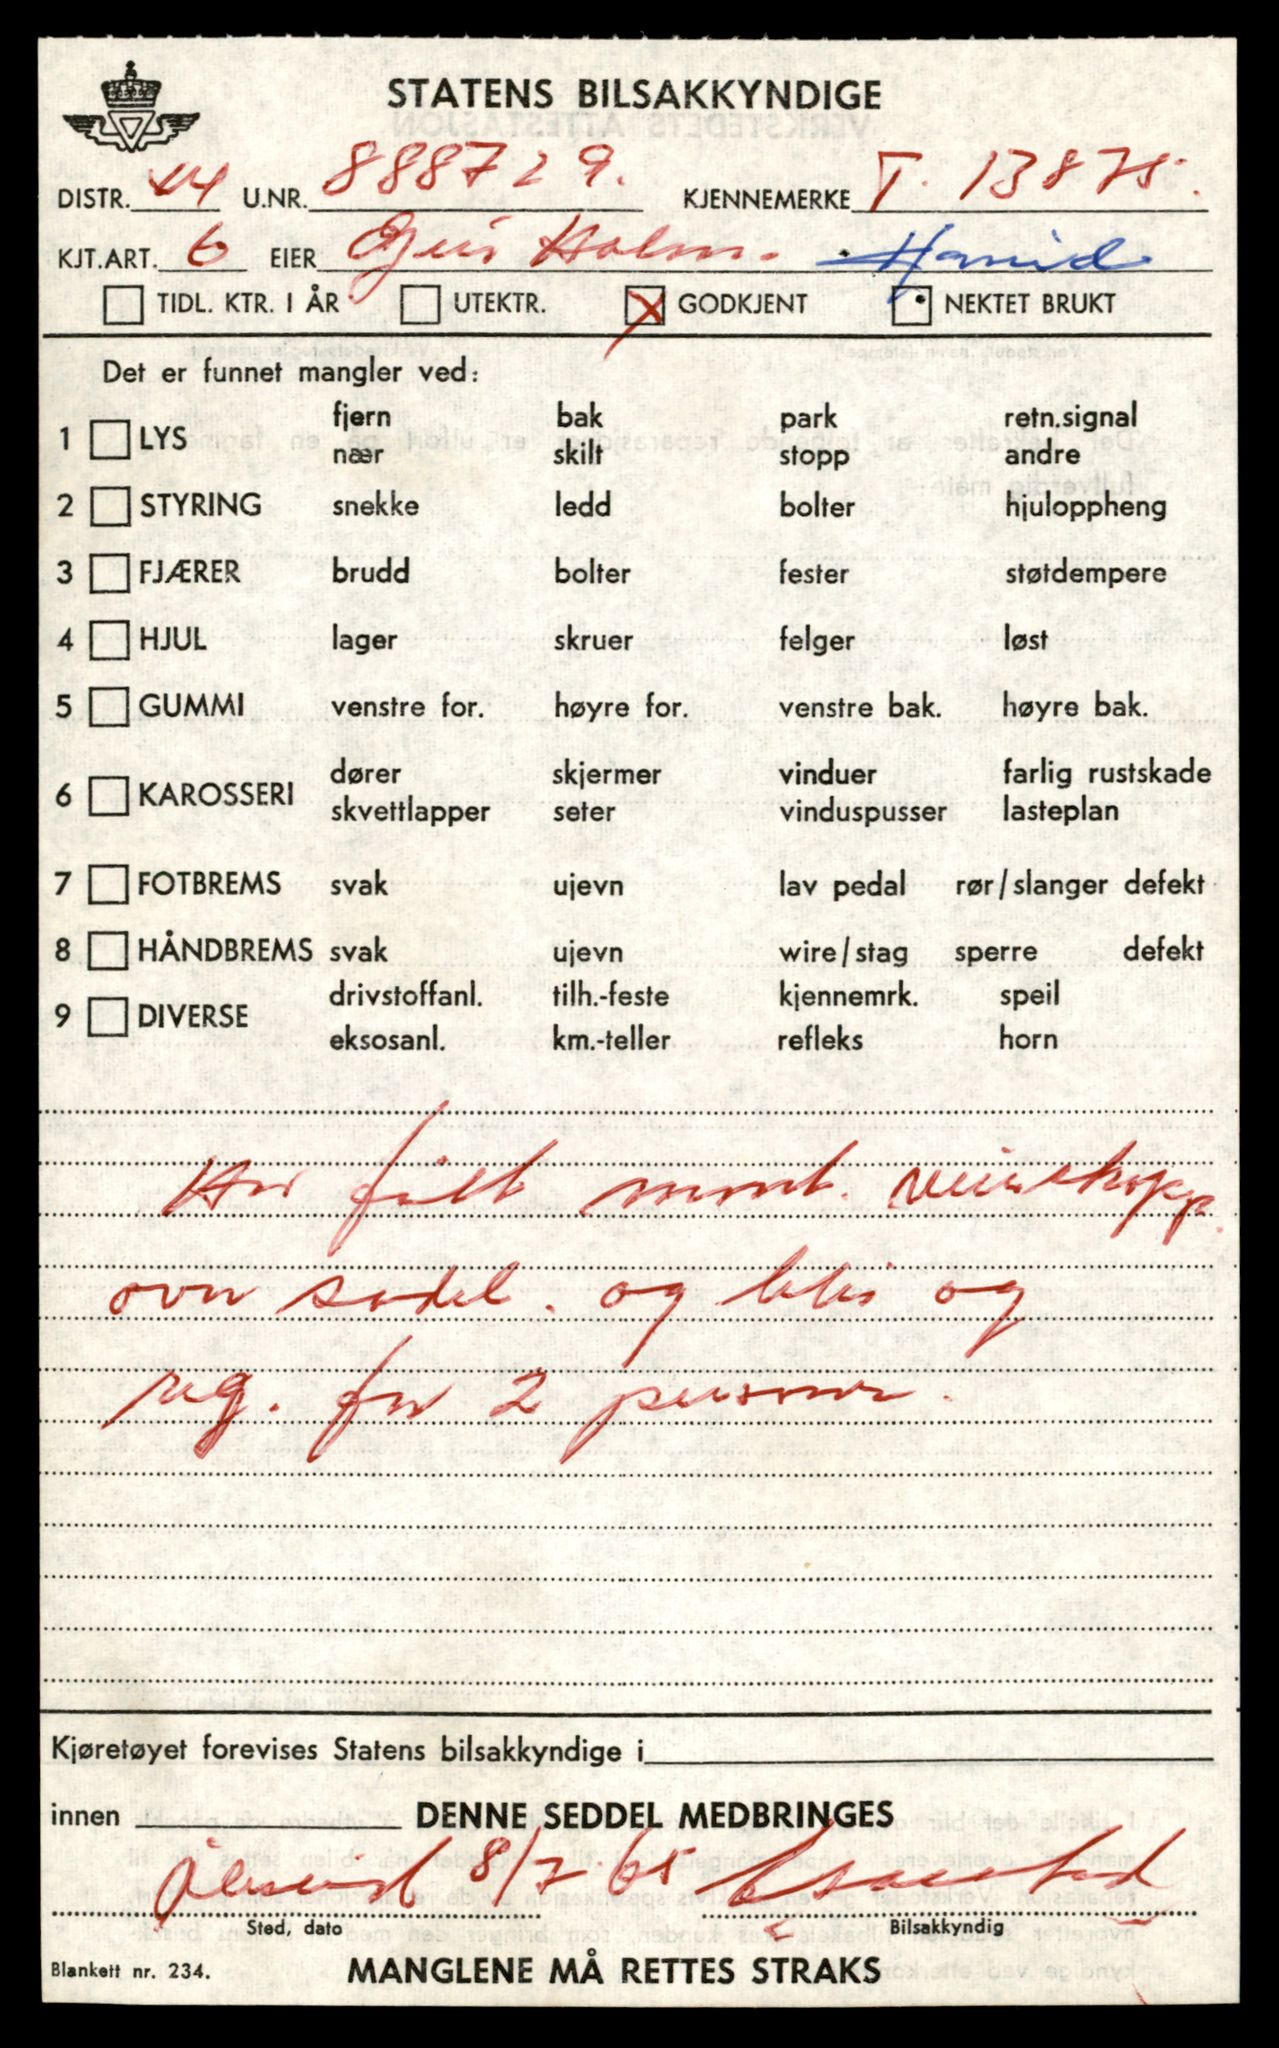 STATENS BILSAKKYNDIGE
DISTR. 44 U.NR. 888729. KJENNEMERKE T. 13875.
KJT.ART. 6 EIER Geir Holm.
TIDL. KTR. I ÅR UTEKTR. X GODKJENT NEKTET BRUKT
Det er funnet mangler ved:
fjern bak park retn.signal
1 LYS
nær skilt stopp andre
2 STYRING snekke ledd bolter hjuloppheng
3 FJÆRER brudd bolter fester støtdempere
4 HJUL lager skruer felger løst
5 GUMMI venstre for. høyre for. venstre bak. høyre bak.
dører skjermer vinduer farlig rustskade
6 KAROSSERI
skvettlapper seter vinduspusser lasteplan
7 FOTBREMS svak ujevn lav pedal rør/slanger defekt
8 HÅNDBREMS svak ujevn wire/stag sperre defekt
drivstoffanl. tilh.-feste kjennemrk. speil
9 DIVERSE
eksosanl. km.-teller refleks horn
Har fått mont.
over sadel. og blir og
reg. for 2 personer.
Kjøretøyet forevises Statens bilsakkyndige i
innen DENNE SEDDEL MEDBRINGES
Ålesund 8/7 65
Sted, dato Bilsakkyndig
Blankett nr. 234. MANGLENE MÅ RETTES STRAKS